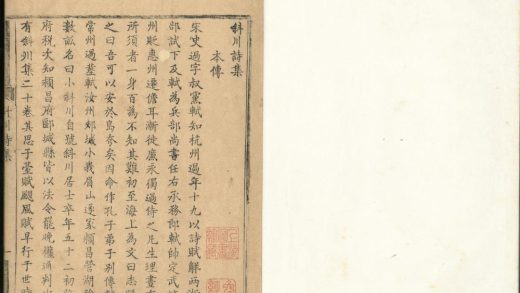 斜川詩集
本傳
宋史過字叔黨軾知杭州過年十九以詩賦解兩浙
部試下及軾為兵部尚書任右承務郎軾帥定武
州貶惠州遷儋耳漸徙廉永獨過侍之凡生理晝夜
所須者一身百為不知其難初至海上為文曰志隱
之曰吾可以安於島夷矣因命作孔子弟子別傳
常州過葬軾汝州郟城小峨眉山遂家潁昌營湖陰
數畝名曰小斜川自號斜川居士卒年五十二初
府稅次知潁昌府郾城縣皆以法令罷晚權通判
有斜川集二十卷其思子臺賦颶風賦早行于世時
斜川詩集
一